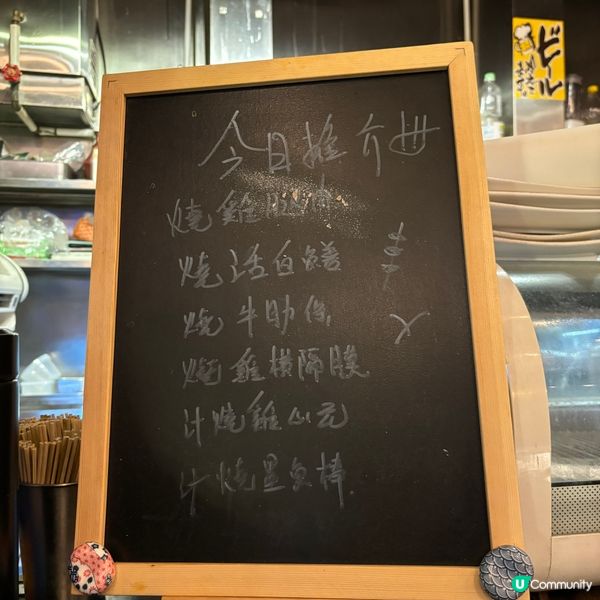 今日推介
燒雞
燒活白鱔
燒牛肋條
燒雞橫隔膜
汁燒雞心元
汁燒墨魚棒
ビール
U Community